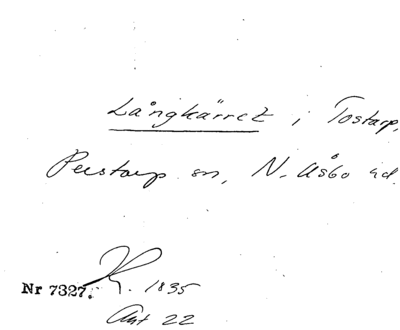 Långkärret i Tostarp,
Perstorp sn, N. Åsbo hd.
Nr 7327. K. 1835
Akt 22